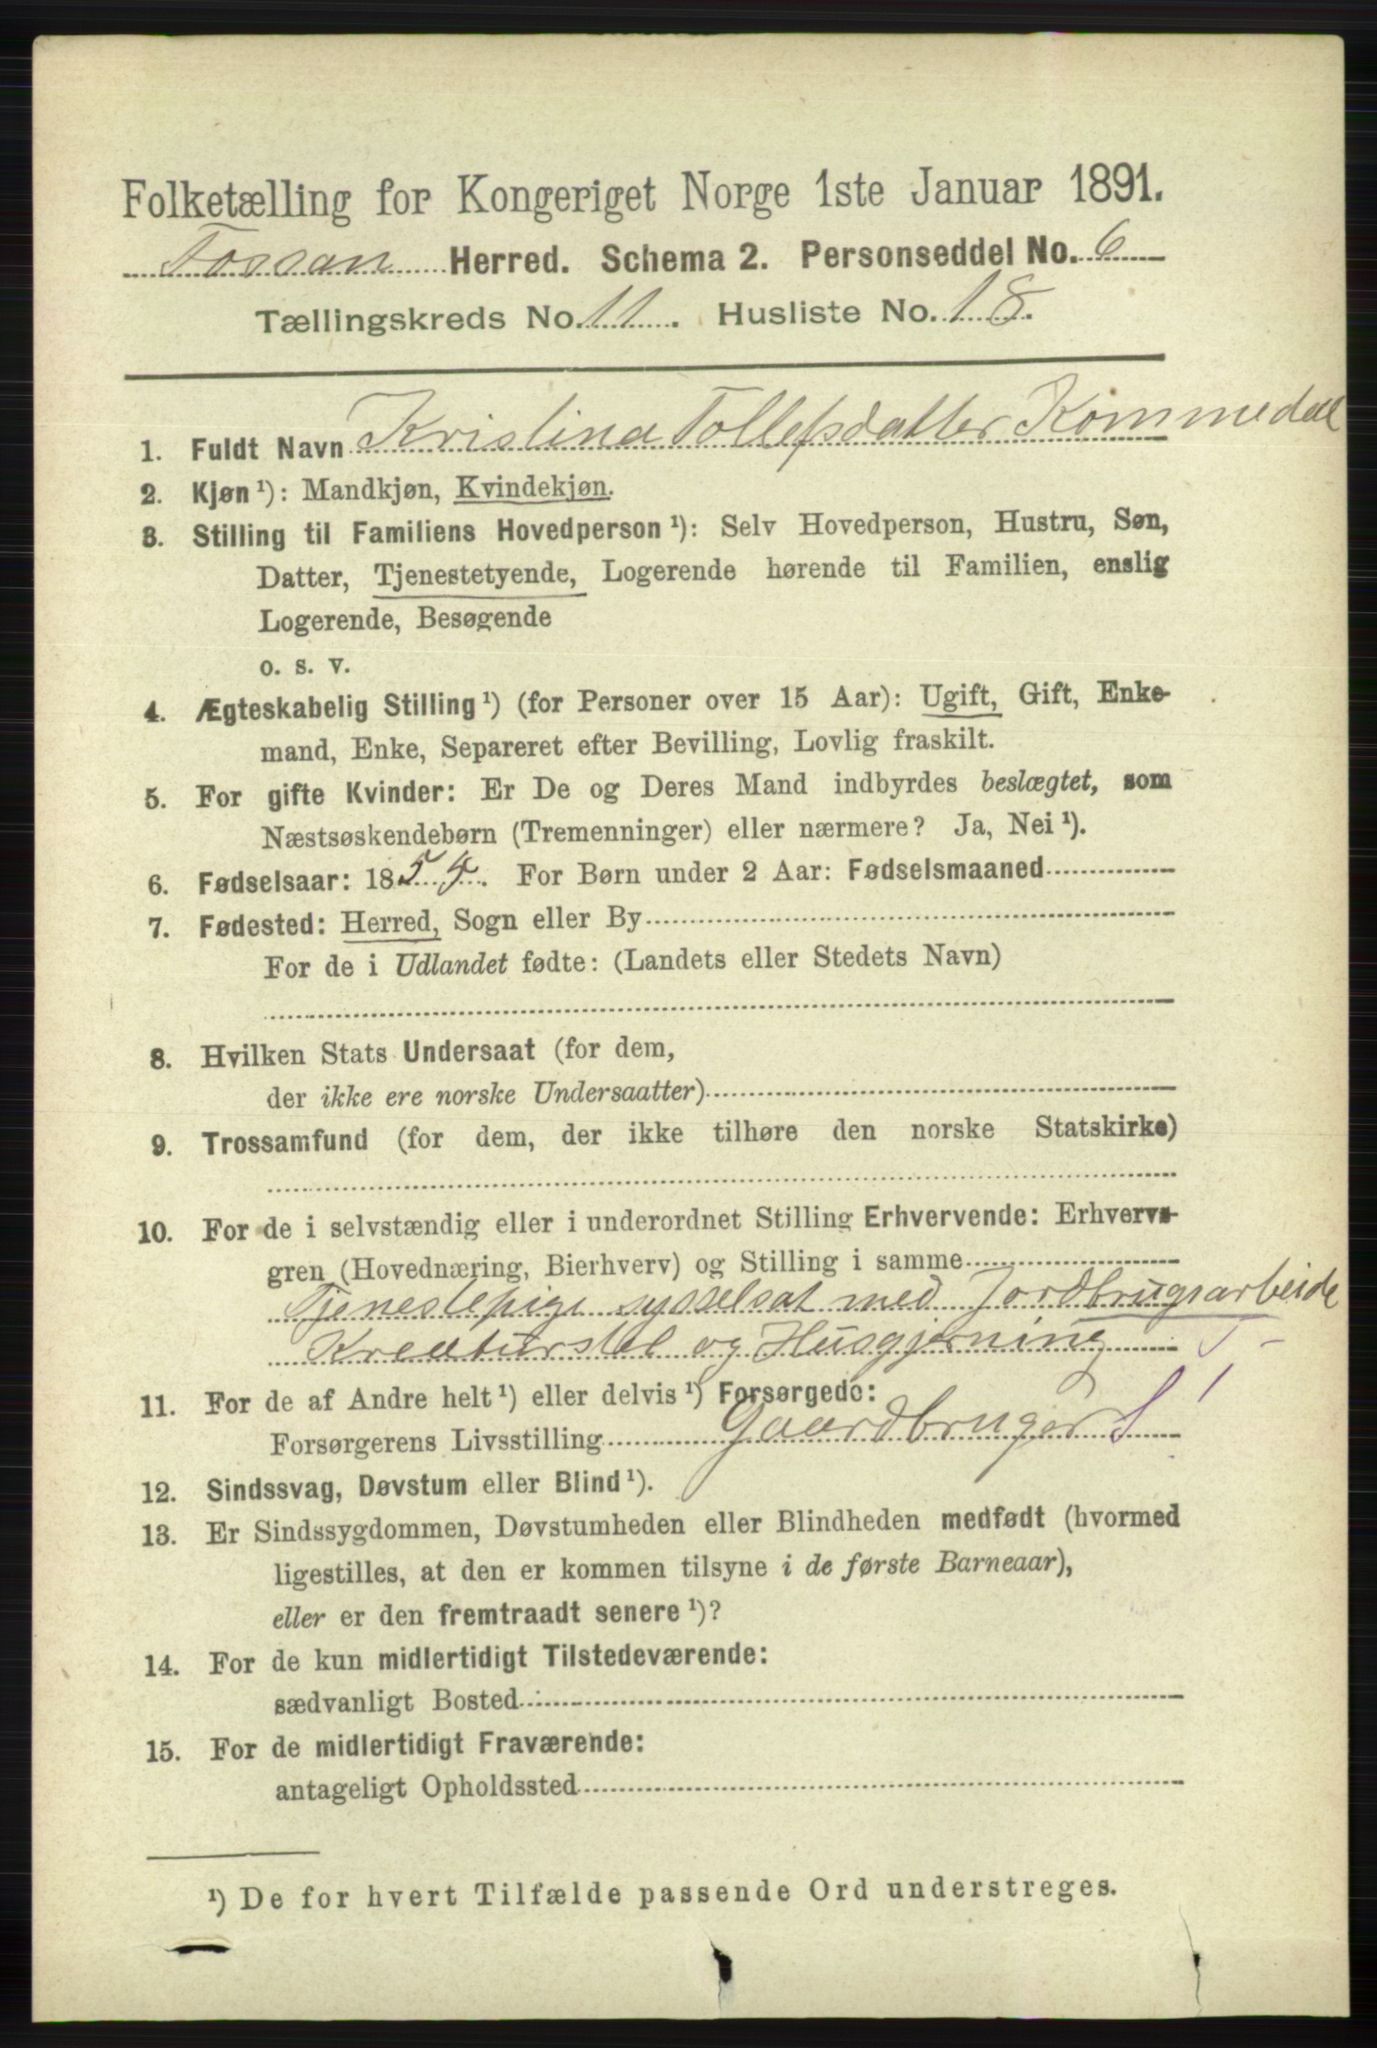 Folketælling for Kongeriget Norge 1ste Januar 1891.
Fossan Herred. Schema 2. Personseddel No. 6
Tællingskreds No. 11. Husliste No. 18.
1. Fuldt Navn Kristina Tollefsdatter Kommedal
2. Kjøn¹): Mandkjøn, Kvindekjøn.
3. Stilling til Familiens Hovedperson¹): Selv Hovedperson, Hustru, Søn,
Datter, Tjenestetyende, Logerende hørende til Familien, enslig
Logerende, Besøgende
o. s. v.
4. Ægteskabelig Stilling¹) (for Personer over 15 Aar): Ugift, Gift, Enke-
mand, Enke, Separeret efter Bevilling, Lovlig fraskilt.
5. For gifte Kvinder: Er De og Deres Mand indbyrdes beslægtet, som
Næstsøskendebørn (Tremenninger) eller nærmere? Ja, Nei¹).
6. Fødselsaar: 1854. For Børn under 2 Aar: Fødselsmaaned
7. Fødested: Herred, Sogn eller By
For de i Udlandet fødte: (Landets eller Stedets Navn)
8. Hvilken Stats Undersaat (for dem,
der ikke ere norske Undersaatter)
9. Trossamfund (for dem, der ikke tilhøre den norske Statskirke)
10. For de i selvstændig eller i underordnet Stilling Erhvervende: Erhvervs-
gren (Hovednæring, Bierhverv) og Stilling i samme
Tjenestepige sysselsat med Jordbrugsarbeide
Kreaturstel og Husgjerning T-
11. For de af Andre helt¹) eller delvis¹) Forsørgede:
Forsørgerens Livsstilling Gaardbruger S 1
12. Sindssvag, Døvstum eller Blind¹).
13. Er Sindssygdommen, Døvstumheden eller Blindheden medfødt (hvormed
ligestilles, at den er kommen tilsyne i de første Barneaar),
eller er den fremtraadt senere¹)?
14. For de kun midlertidigt Tilstedeværende:
sædvanligt Bosted
15. For de midlertidigt Fraværende:
antageligt Opholdssted
¹) De for hvert Tilfælde passende Ord understreges.